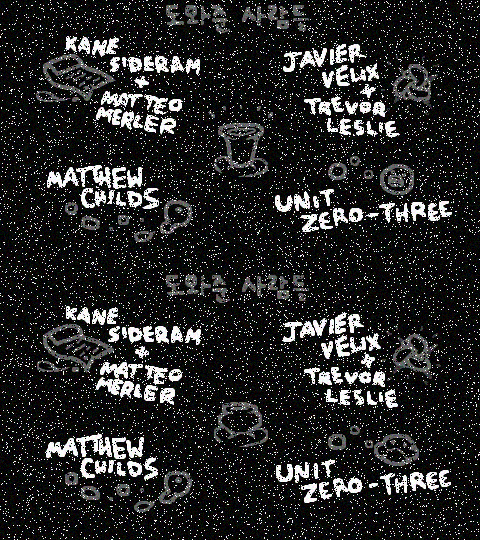 도와준 사람들
KANE
SIDERAM
+
MATTEO
MERLER
JAVIER
VELIX
+
TREVOR
LESLIE
MATTHEW
CHILDS
UNIT
ZERO-THREE
도와준 사람들
KANE
SIDERAM
+
MATTEO
MERLER
JAVIER
VELIX
+
TREVOR
LESLIE
MATTHEW
CHILDS
UNIT
ZERO-THREE